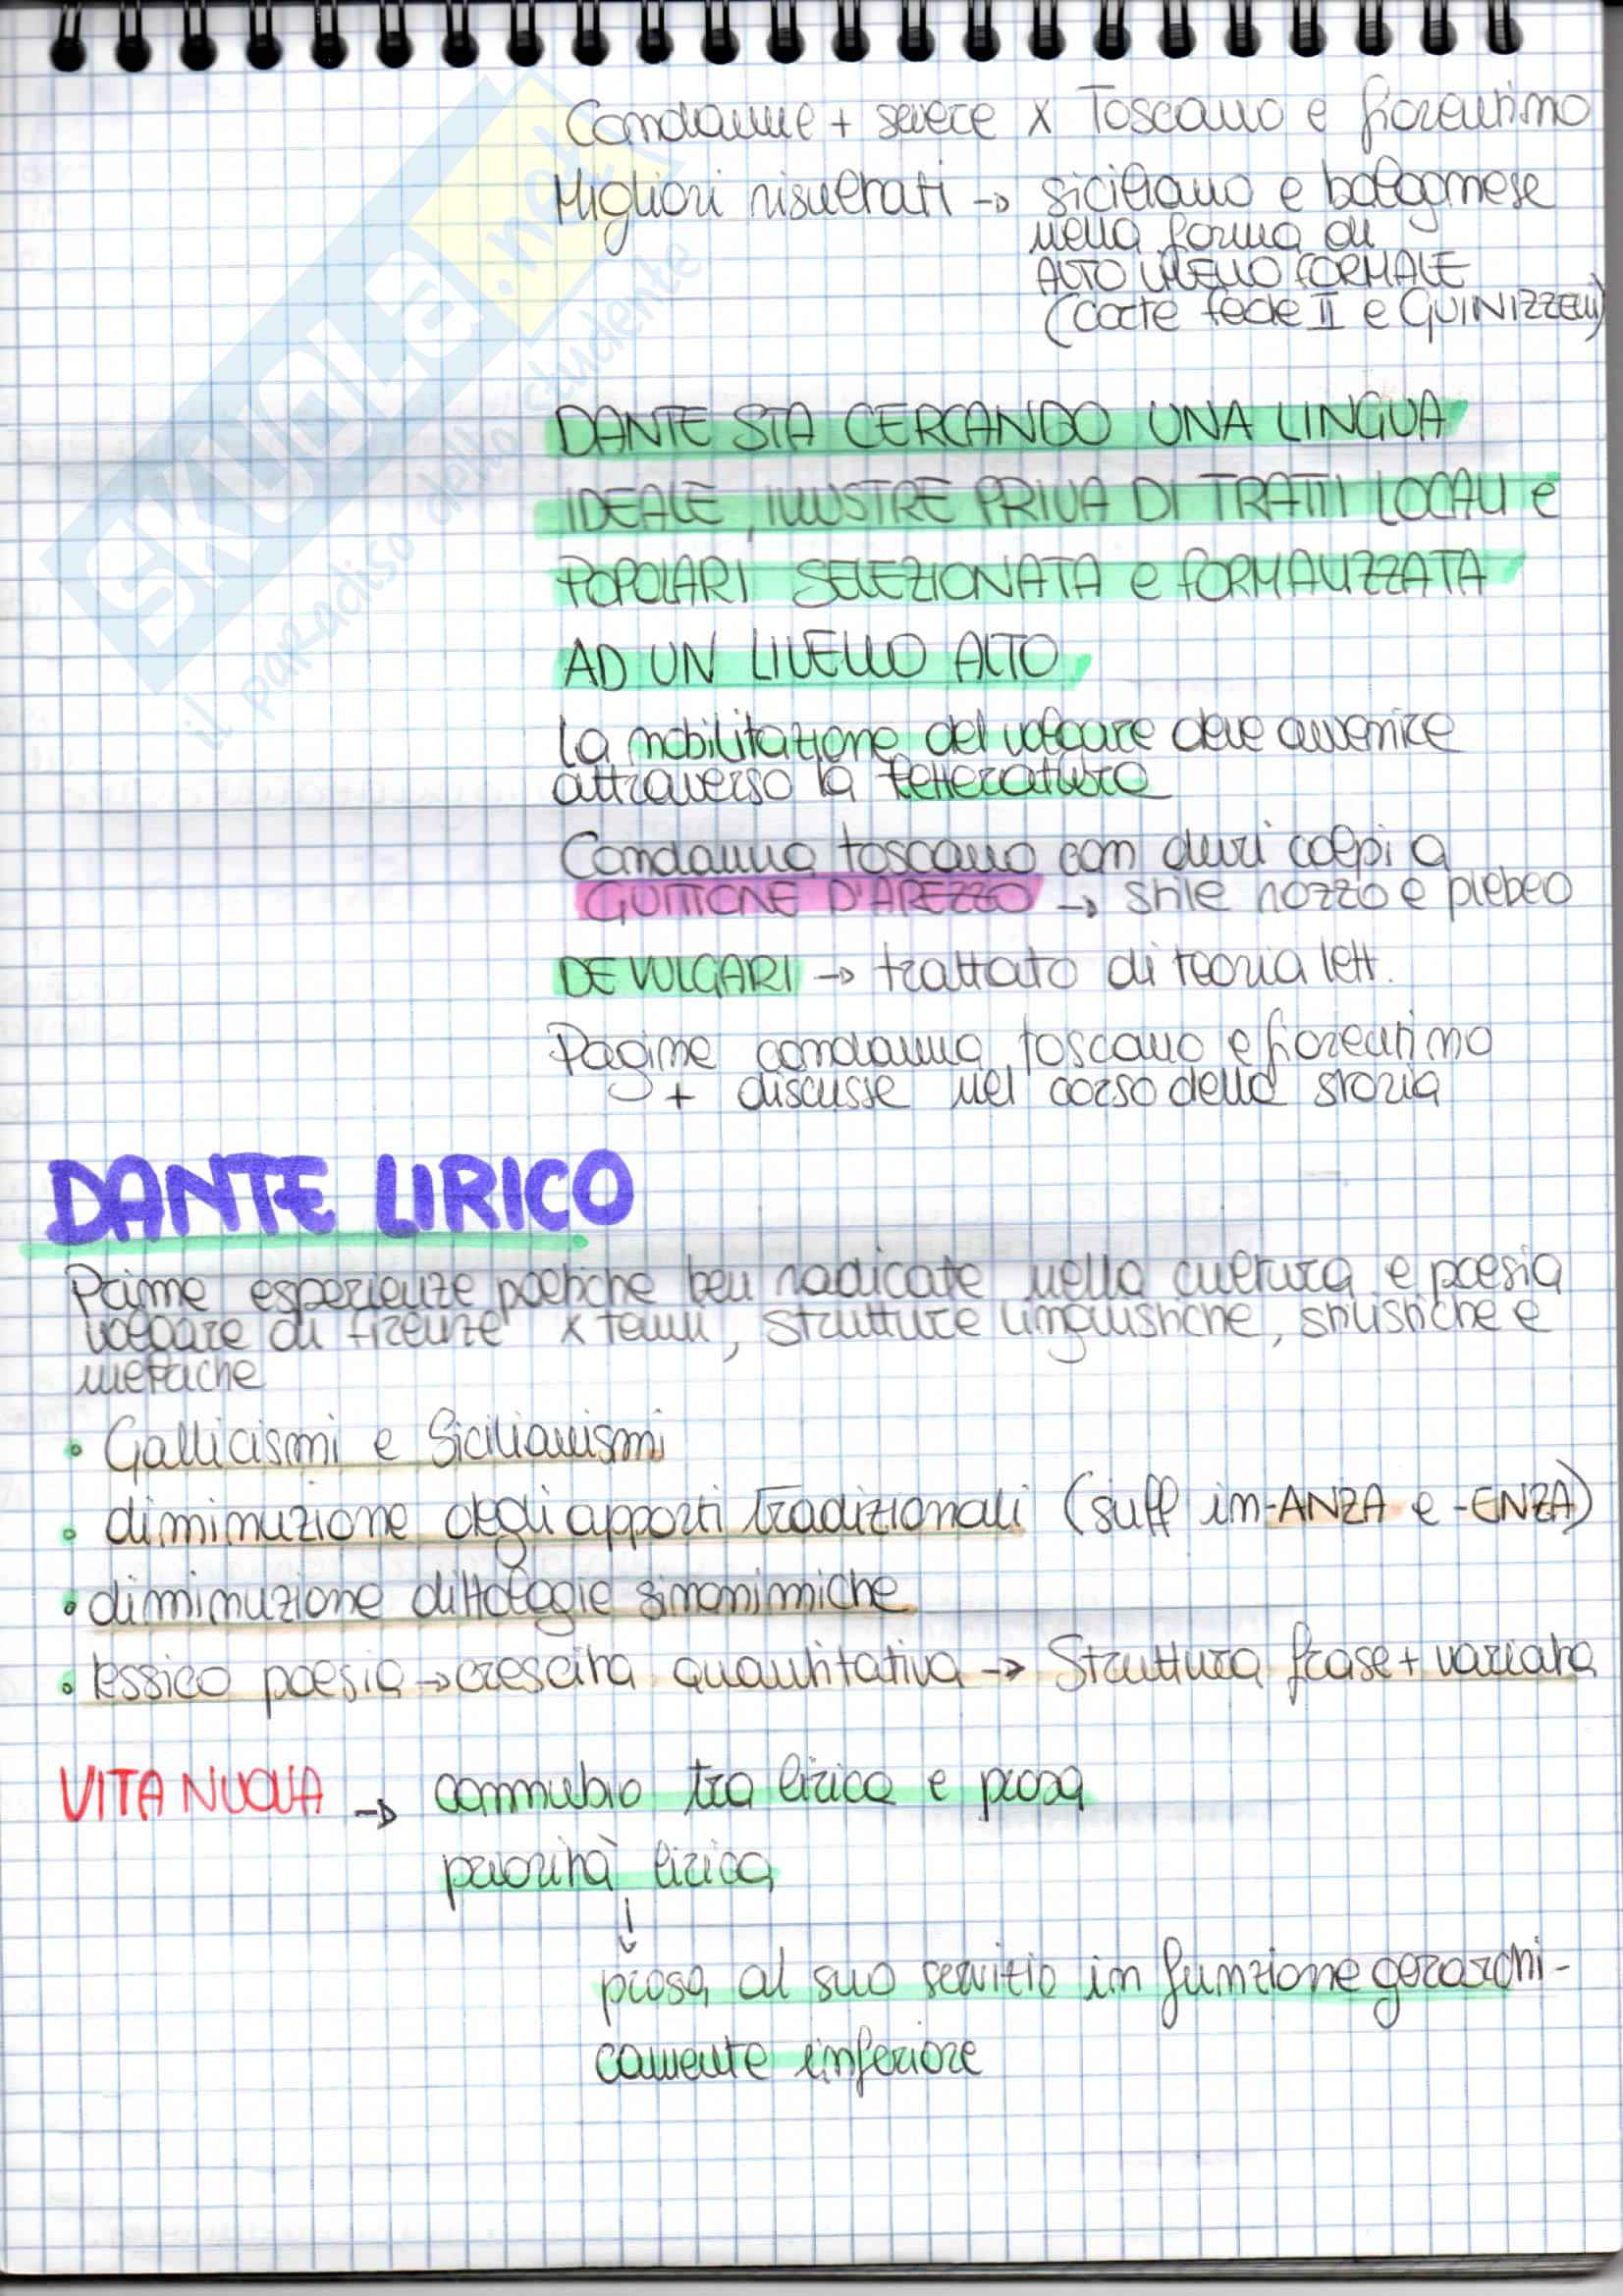 Condanne + severe x Toscano e fiorentino
Migliori risultati → siciliano e bolognese
nella forma di
ALTO LIVELLO FORMALE
(corte fede II e GUINIZZELLI)
SKUOLA.net
il paradiso dello studente
DANTE STA CERCANDO UNA LINGUA
IDEALE, ILLUSTRE PRIVA DI TRATTI LOCALI e
POPOLARI SELEZIONATA e FORMALIZZATA
AD UN LIVELLO ALTO
La nobilitazione del volgare deve avvenire
attraverso la letteratura
Condanna toscano con duri colpi a
GUITTONE D'AREZZO → stile rozzo e plebeo
DE VULGARI → trattato di teoria lett.
Pagine condanna toscano e fiorentino
+ discusse nel corso della storia
DANTE LIRICO
Prime esperienze poetiche ben radicate nella cultura e poesia
volgare di firenze x temi, strutture linguistiche, stilistiche e
metriche
• Gallicismi e Sicilianismi
• diminuzione degli apporti tradizionali (suff in -ANZA e -ENZA)
• diminuzione dittologie sinonimiche
• lessico poesia → crescita quantitativa → Struttura frase + variata
VITA NUOVA → connubio tra lirica e prosa
priorità lirica
↓
prosa al suo servizio in funzione gerarchi-
camente inferiore